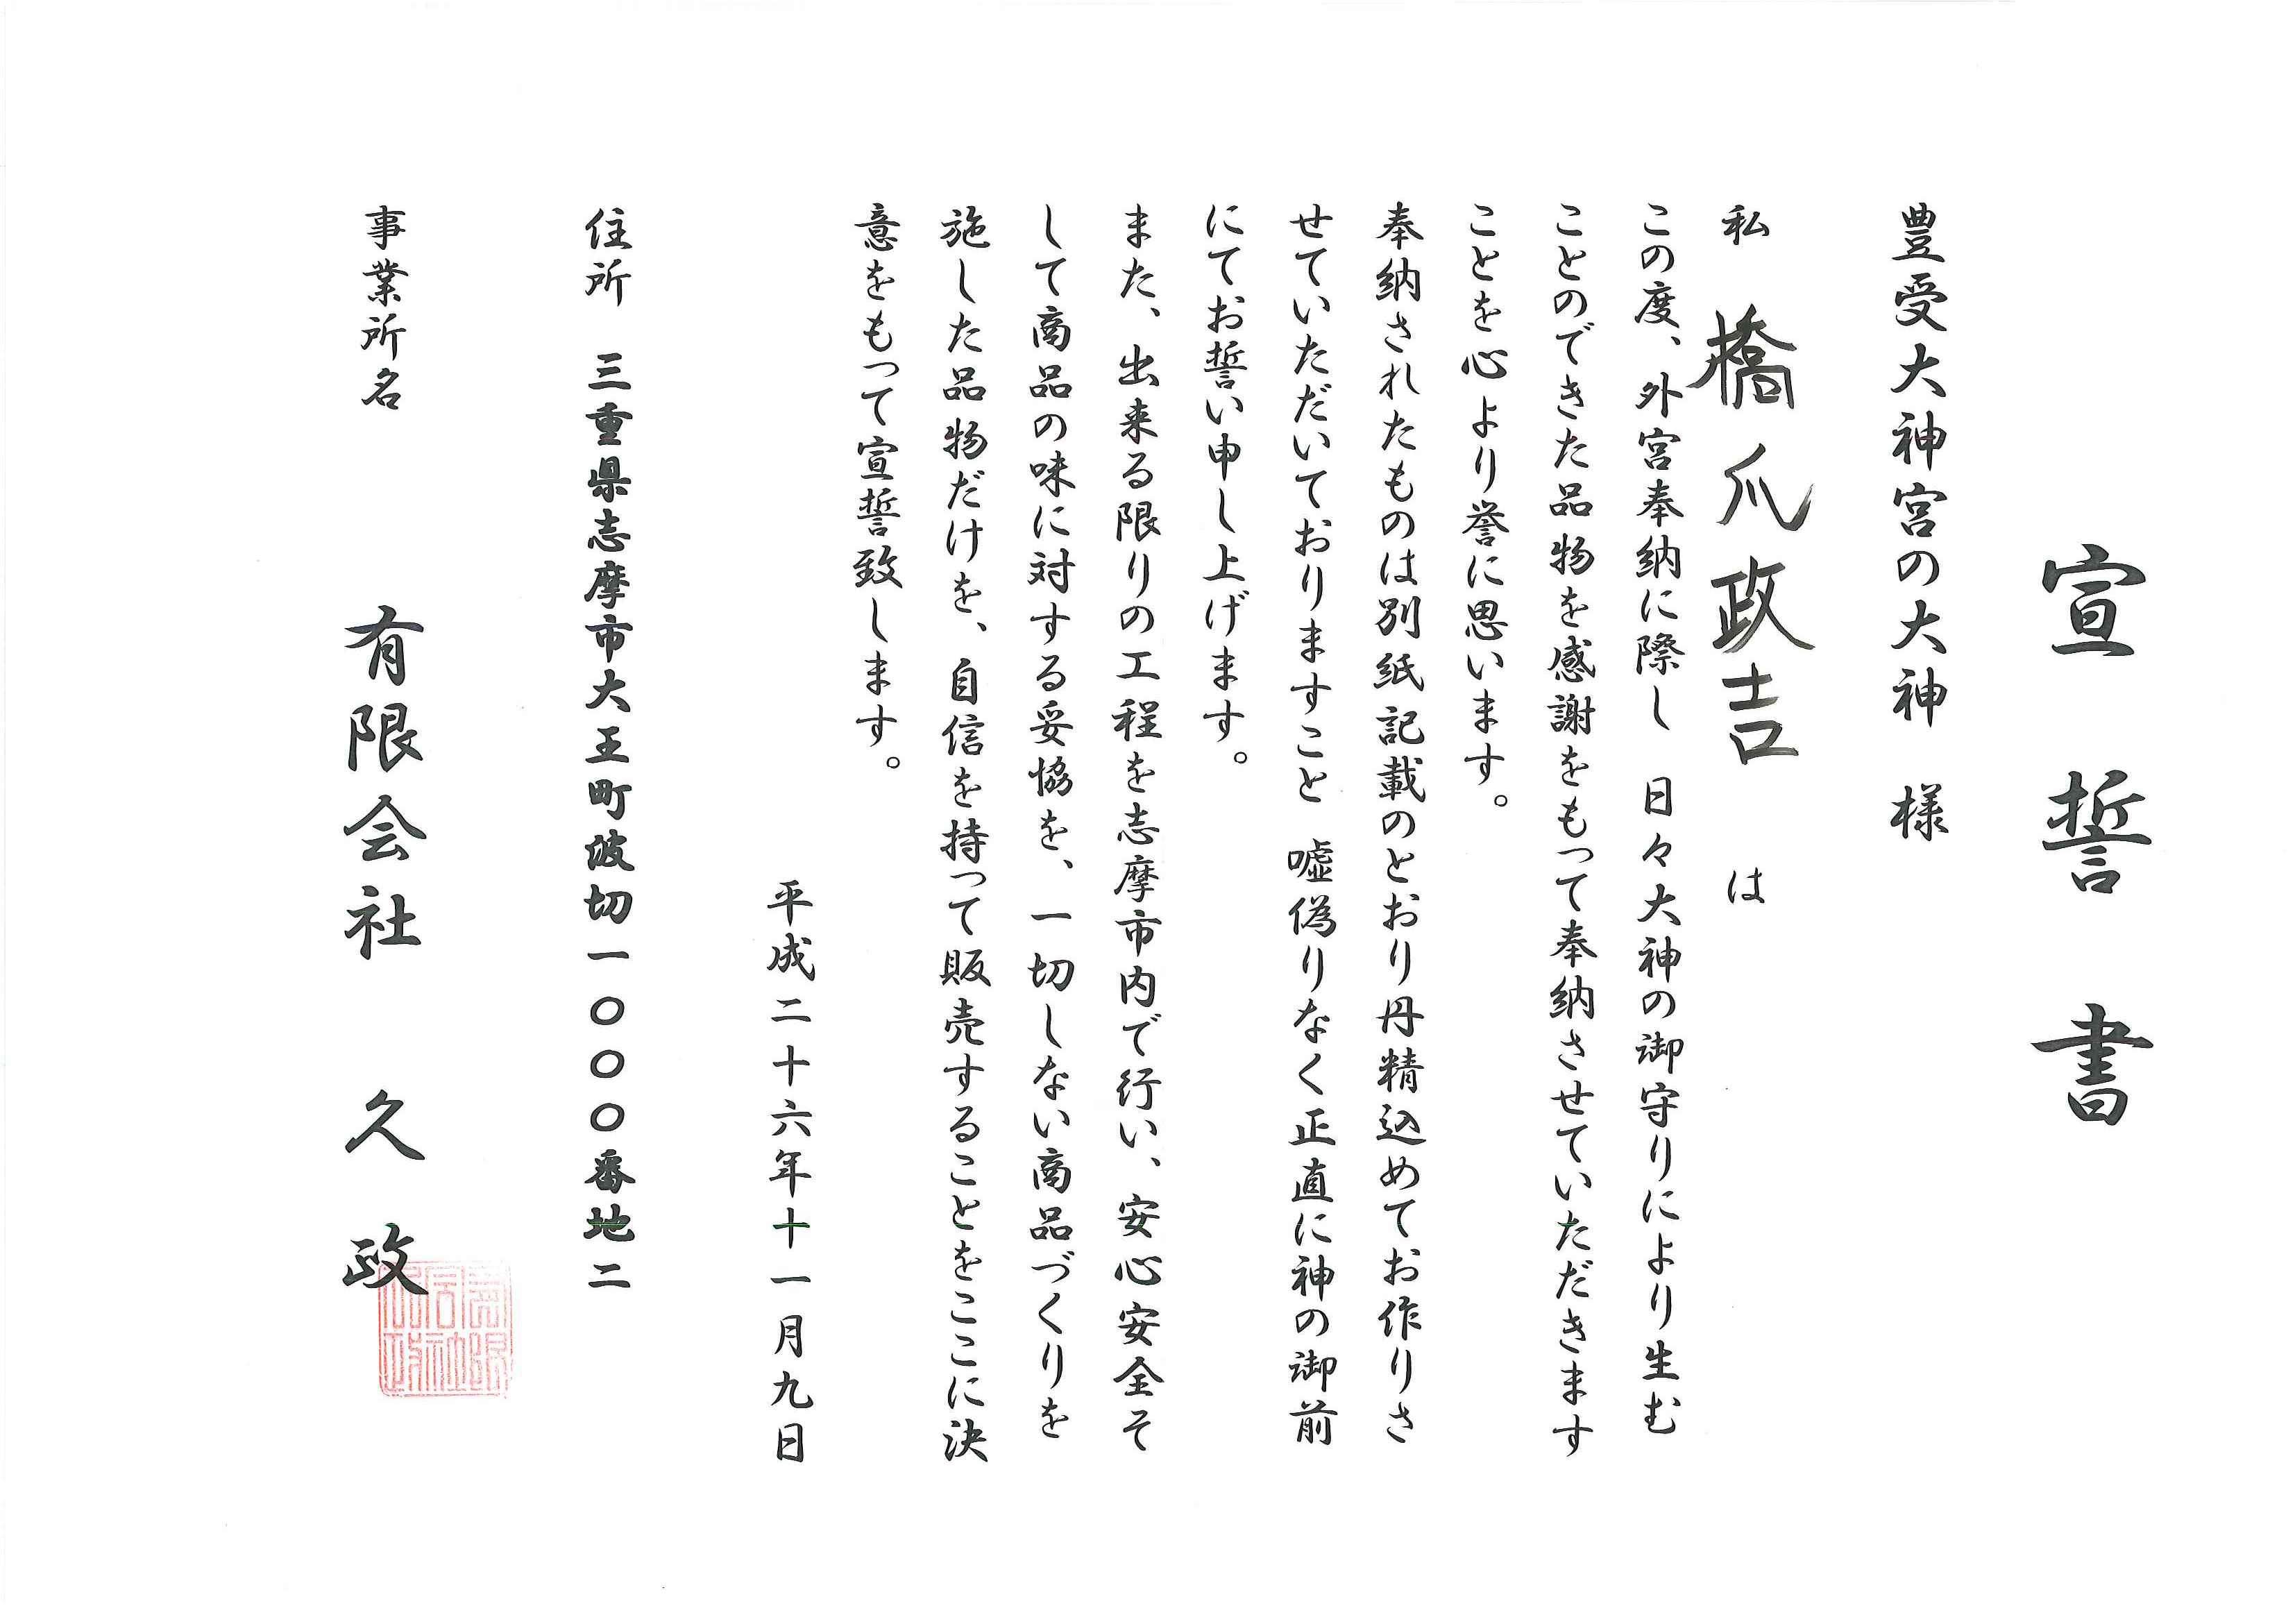 宣誓書
豊受大神宮の大神 様
私 橋爪政吉 は
この度、外宮奉納に際し 日々大神の御守りにより生む
ことのできた品物を感謝をもって奉納させていただきます
ことを心より誉に思います。
奉納されたものは別紙記載のとおり丹精込めてお作りさ
せていただいておりますこと 嘘偽りなく正直に神の御前
にてお誓い申し上げます。
また、出来る限りの工程を志摩市内で行い、安心安全そ
して商品の味に対する妥協を、一切しない商品づくりを
施した品物だけを、自信を持って販売することをここに決
意をもって宣誓致します。
平成二十六年十一月九日
住所 三重県志摩市大王町波切一〇〇〇番地二
事業所名 有限会社 久政